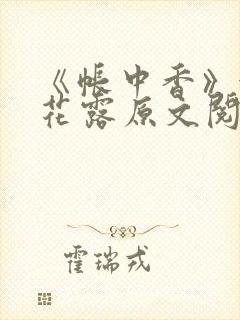 《帐中香》
花露原文阅
霍瑞戎